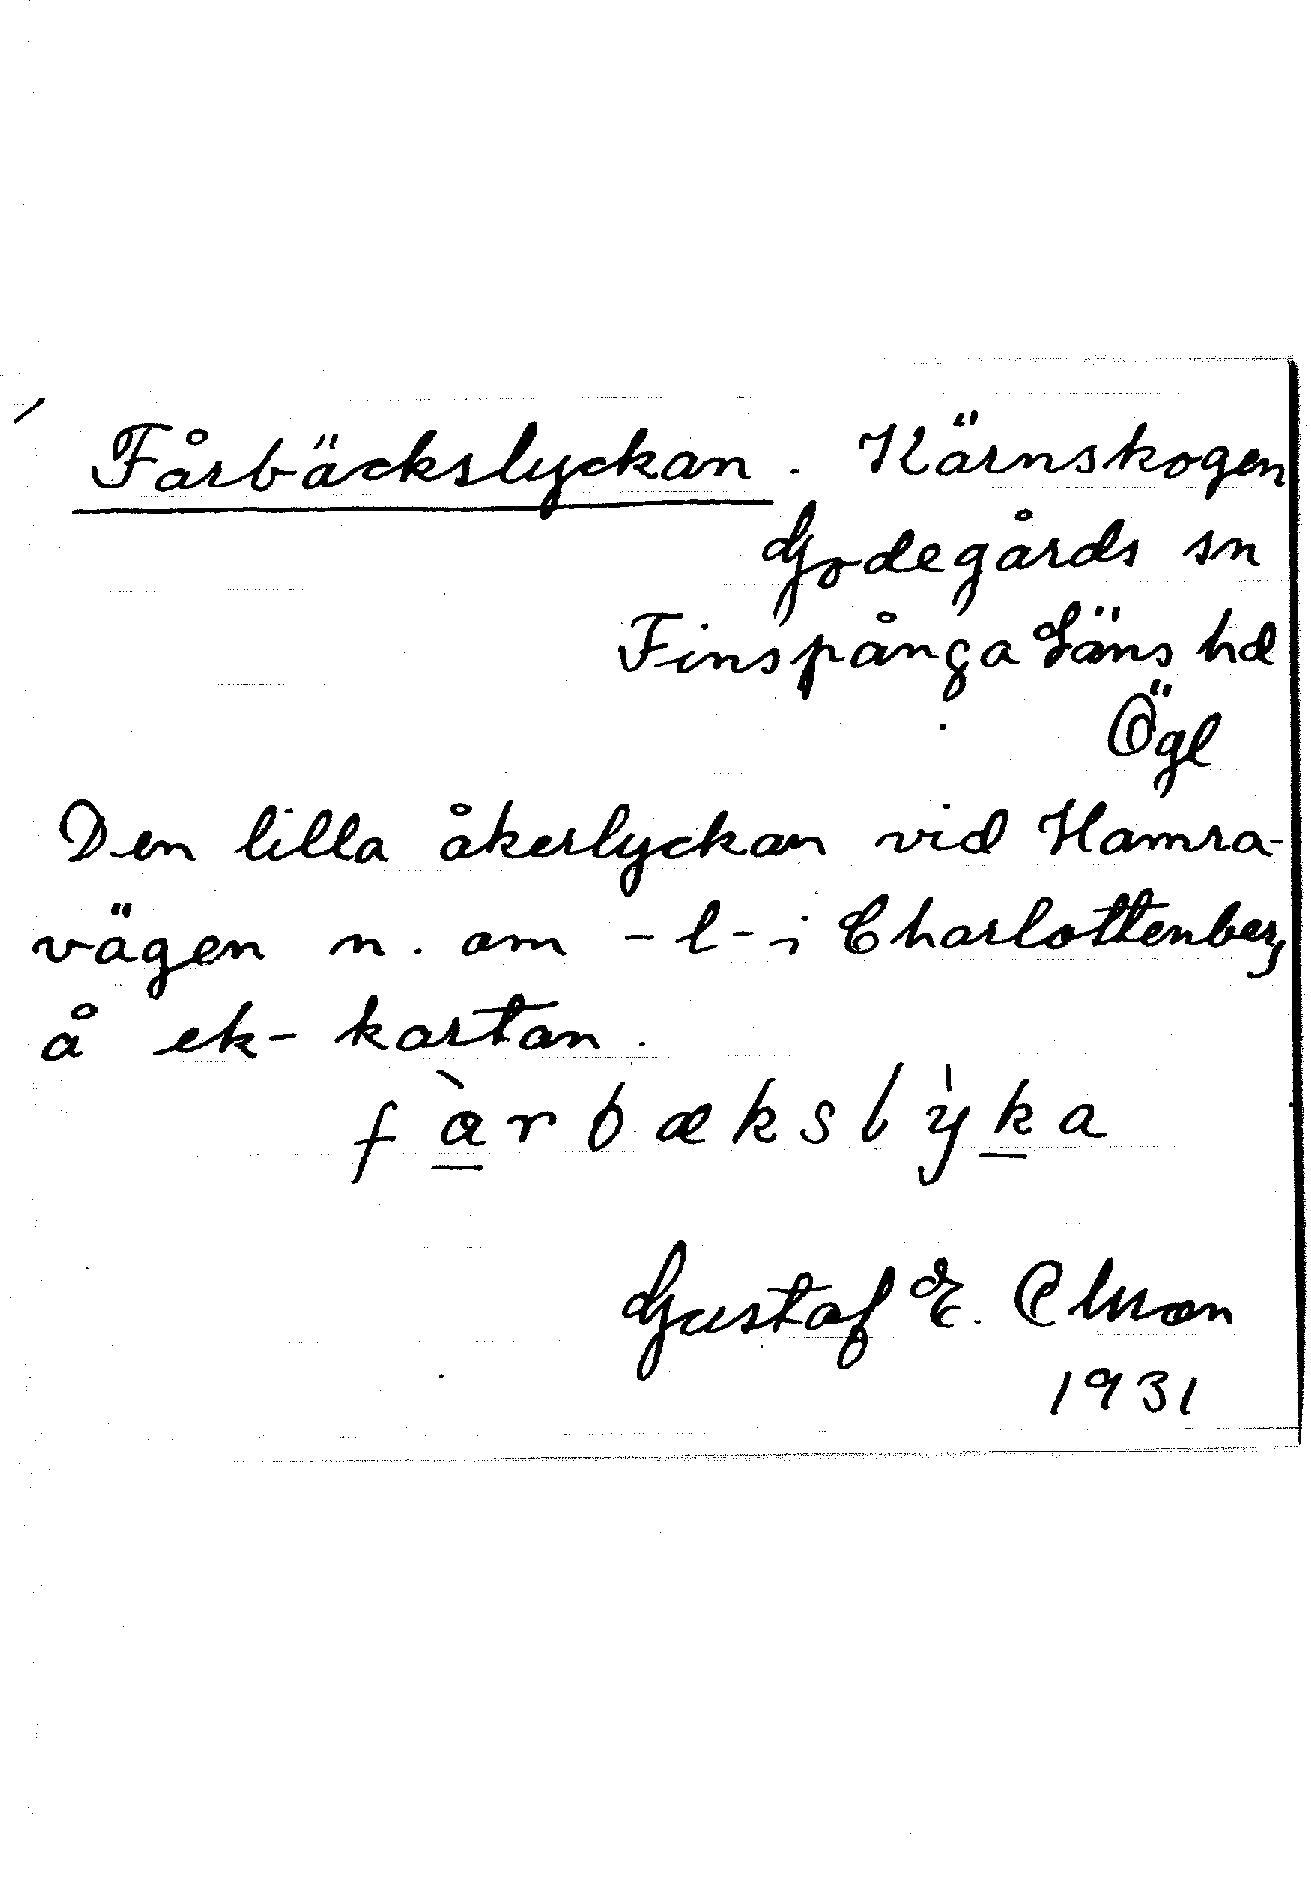 Fårbäckslyckan. Kärnskogen
Godegårds sn
Finspånga Läns hd
Ögl
Den lilla åkerlyckan vid Hamra-
vägen n. om -l- i Charlottenberg
å ek-kartan.
fàrbækslỳka
Gustaf E.
1931